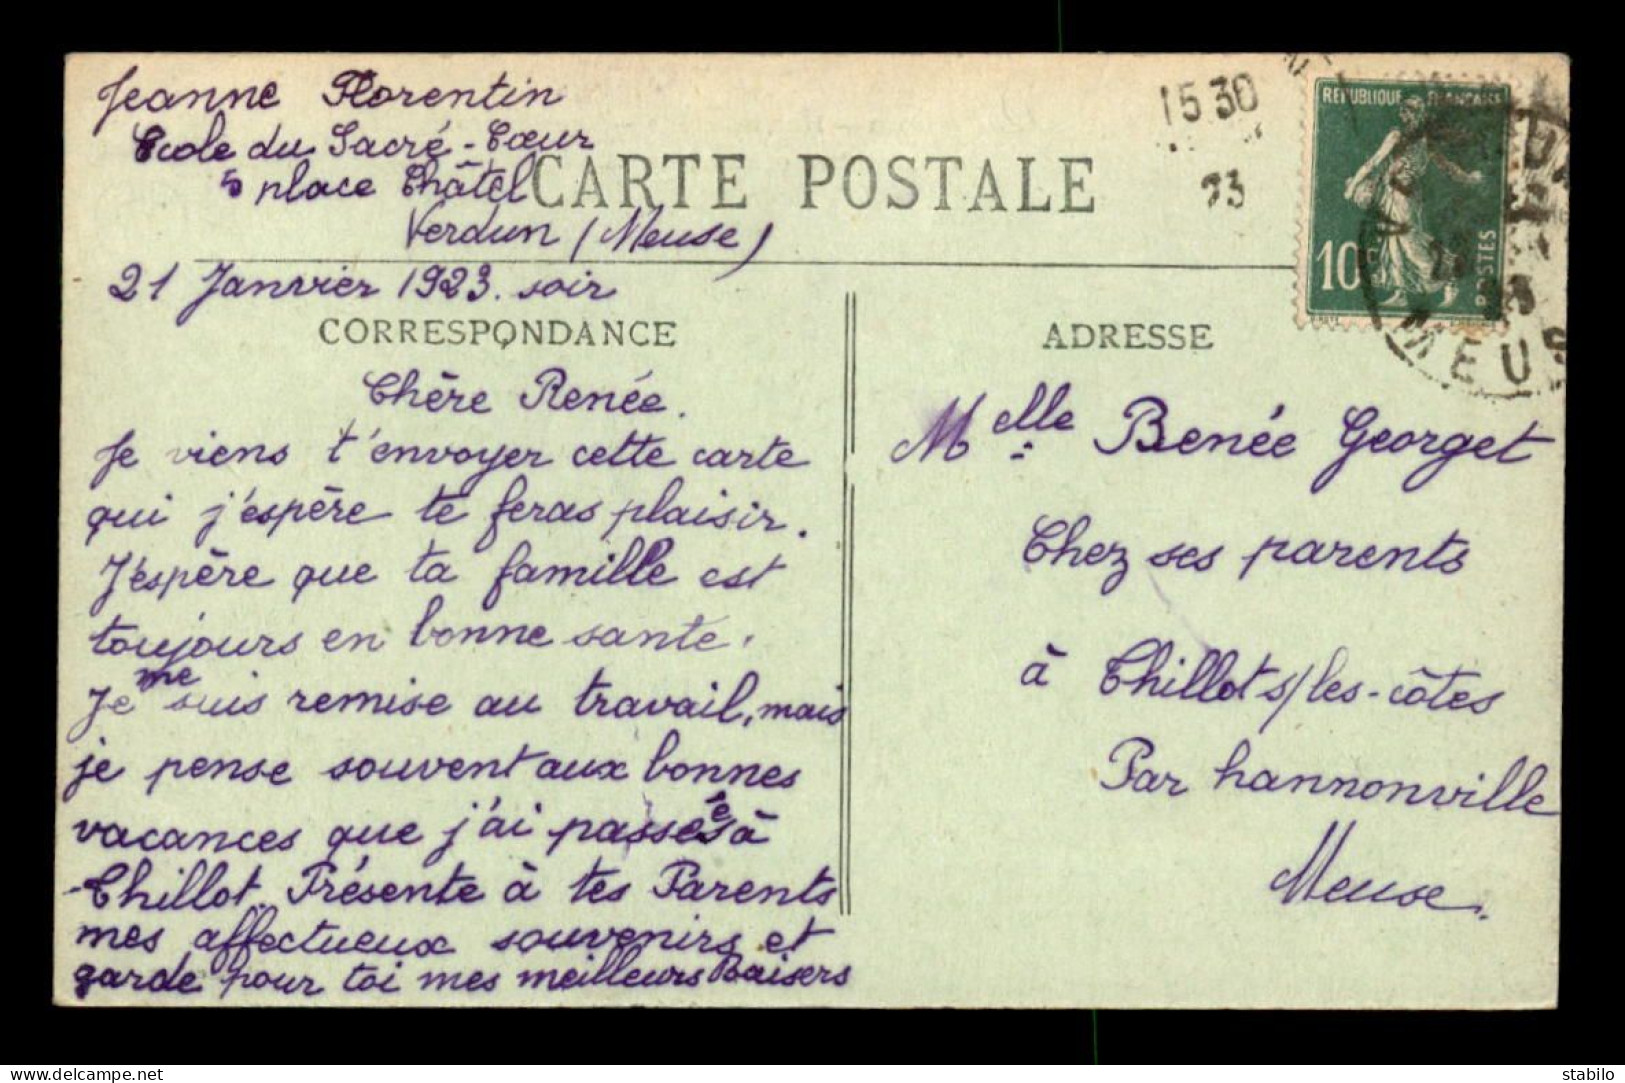 Jeanne Florentin
Ecole du Sacré-Cœur
5 place Châtel
Verdun (Meuse)
CARTE POSTALE
15 30
23
REPUBLIQUE FRANÇAISE
10c
POSTES
MEUSE
21 Janvier 1923. soir
CORRESPONDANCE
Chère Renée.
Je viens t'envoyer cette carte
qui j'espère te feras plaisir.
J'espère que ta famille est
toujours en bonne santé.
Je me suis remise au travail, mais
je pense souvent aux bonnes
vacances que j'ai passées à
Thillot. Présente à tes Parents
mes affectueux souvenirs et
garde pour toi mes meilleurs Baisers
ADRESSE
Melle Renée Georget
Chez ses parents
à Thillot s/les-côtes
Par hannonville
Meuse.
delcampe.net
stabilo